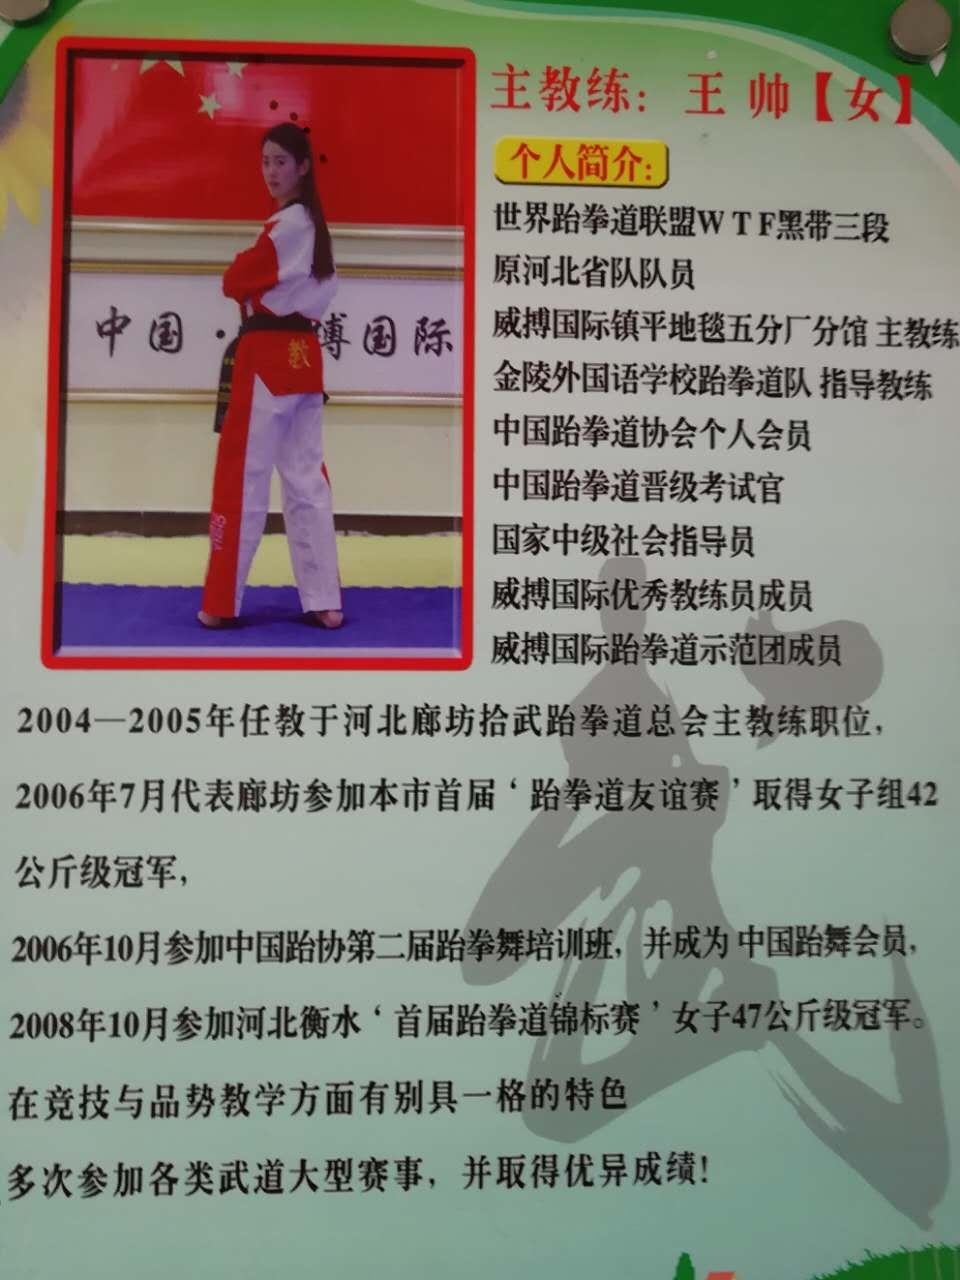 主教练：王 帅【女】
个人简介：
世界跆拳道联盟W T F黑带三段
原河北省队队员
威搏国际镇平地毯五分厂分馆 主教练
金陵外国语学校跆拳道队 指导教练
中国跆拳道协会个人会员
中国跆拳道晋级考试官
国家中级社会指导员
威搏国际优秀教练员成员
威搏国际跆拳道示范团成员
中国·搏国际
教
CHINA
2004—2005年任教于河北廊坊拾武跆拳道总会主教练职位，
2006年7月代表廊坊参加本市首届‘跆拳道友谊赛’取得女子组42
公斤级冠军，
2006年10月参加中国跆协第二届跆拳舞培训班，并成为 中国跆舞会员，
2008年10月参加河北衡水‘首届跆拳道锦标赛’女子47公斤级冠军。
在竞技与品势教学方面有别具一格的特色
多次参加各类武道大型赛事，并取得优异成绩!
武